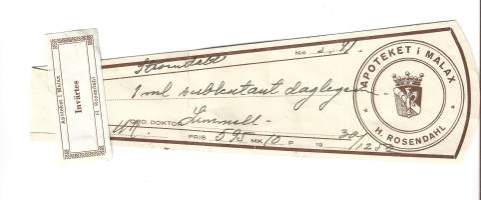 Apoteket i Malax
Invärtes
H. Rosendahl
No
1 ml subkutant dagligen
ORD. DOKTOR
PRIS 595 MK 10 P 19
APOTEKET i MALAX
H. ROSENDAHL